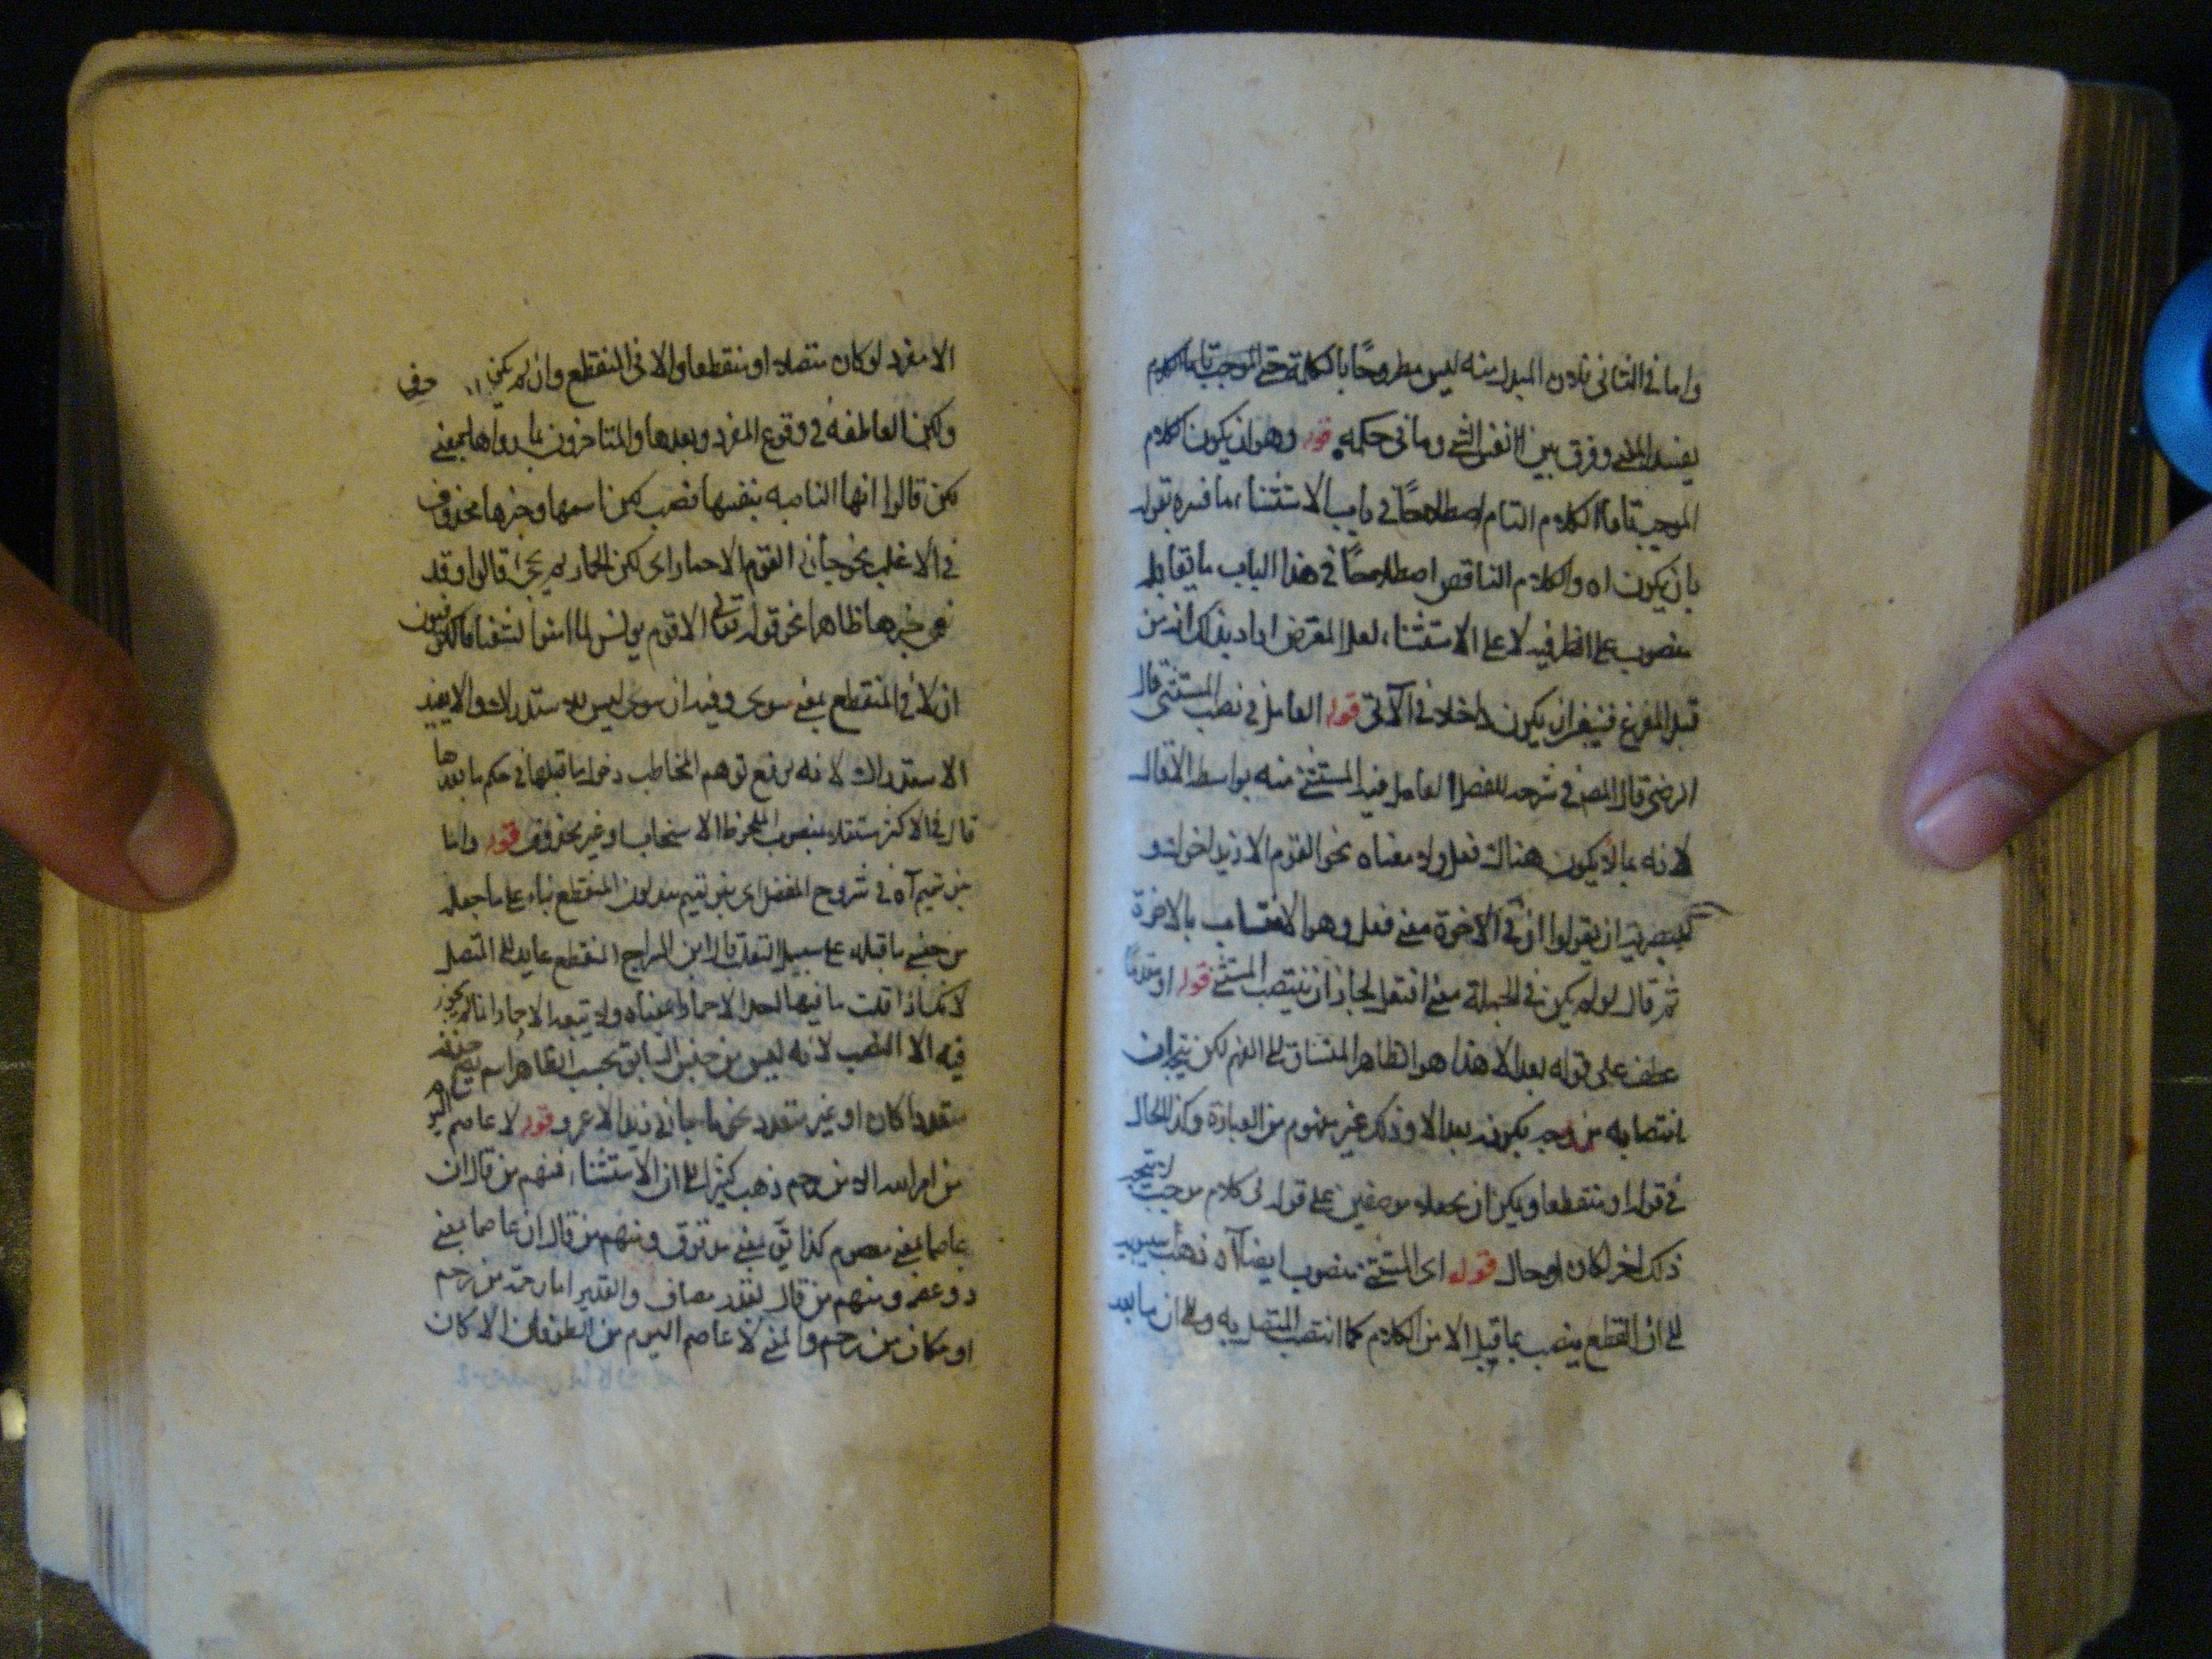 واما في الثاني فلان المبدل منه ليس مطروحًا بالكلية حتى الموجب تاما كلام
يفيد المعنى وفرق بين انفس الشيء وما في حكمه قوله وهو ان يكون كلام
الموجب تاما الكلام التام اصطلاحًا في باب الاستثناء ما فسره بقوله
بان يكون اه والكلام الناقص اصطلاحًا في هذا الباب ما يقابله
منصوب على الظرفيه لا على الاستثناء لعل المعترض اراد بذلك انه من
قبيل المفرغ فينبغي ان يكون داخلا في الآتي قوله العامل في نصب المستثنى قال
الرضي قال المصنف في شرحه للمفصل العامل فيه المستثنى منه بواسطه الا قال
لانه بما لا يكون هناك فعل ولا معناه نحو القوم الا زيد اخوتك و
للبصرية ان يقولوا ان في الاخوة معنى فعل وهو الانتساب بالاخوة
ثم قال لو لم يكن في الجملة معنى الفعل لجاز ان ينتصب المستثنى قوله او مقدما
عطف على قوله بعد الا هذا هو الظاهر المنساق الى الفهم لكن يتجه ان
انتصابه من وجه بكونه بعد الا وذلك غير مفهوم من العبارة وكذا الحال
في قوله او منقطعا ويمكن ان يجعلا معطوفين على قوله في كلام موجب لا يتجه
ذلك اخر لكان او حال قوله اى المستثنى منصوب ايضا اه ذهب سيبويه
الى ان المنقطع ينصب بما قبل الا من الكلام كما انتصب المتصل به والى ان ما بعد
الا مفرد لو كان متصلا او منقطعا والا في المنقطع وان لم يكن حرف
ولكن العاطفة في وقوع المفرد وبعدها والمتاخرون لما رواها بمعنى
لكن قالوا انها الناصبه بنفسها نصب لكن اسمها وخبرها محذوف
في الاغلب نحو جاني القوم الا حمارا اى لكن الحمار لم يجئ قالوا وقد
يجئ خبرها ظاهرا نحو قوله تعالى الا قوم يونس لما امنوا كشفنا الكوفيون
ان الا في المنقطع بمعنى سوى وفيه ان سوى ليس للاستدراك والا يفيد
الاستدراك لانه يرفع توهم المخاطب دخول ما قبلها في حكم ما بعدها
قال في الاكثر متعلق بمنصوب الملحوظ الا سنجاب او غير محذوف قوله واما
بنى تميم اه في شروح المفصل اى بنى تميم يبدلون المنقطع بناء على ما جعله
من جنس ما قبله على سبيل التقدير قال ابن السراج المنقطع عايد الى المتصل
لانك اذا قلت ما فيها احد الا حمارا معناه ولا يتبعه الا حمار انما لم يجوز
فيه الا النصب لانه ليس من جنس السابق بحسب الظاهر اسم يصح حذفه
متعددا كان او غير متعدد نحو ما جاني زيد الا عمرو قوله لا عاصم اليوم
من امر الله الا من رحم ذهب كثير الى ان الاستثناء فمنهم من قال ان
عاصما بمعنى معصوم كدافق بمعنى مدفوق ومنهم من قال ان عاصما بمعنى
ذو عصمة ومنهم من قال بتقدير مضاف والتقدير اما رحمة من رحم
او مكان من رحم والمعنى لا عاصم اليوم من الطوفان الا كان